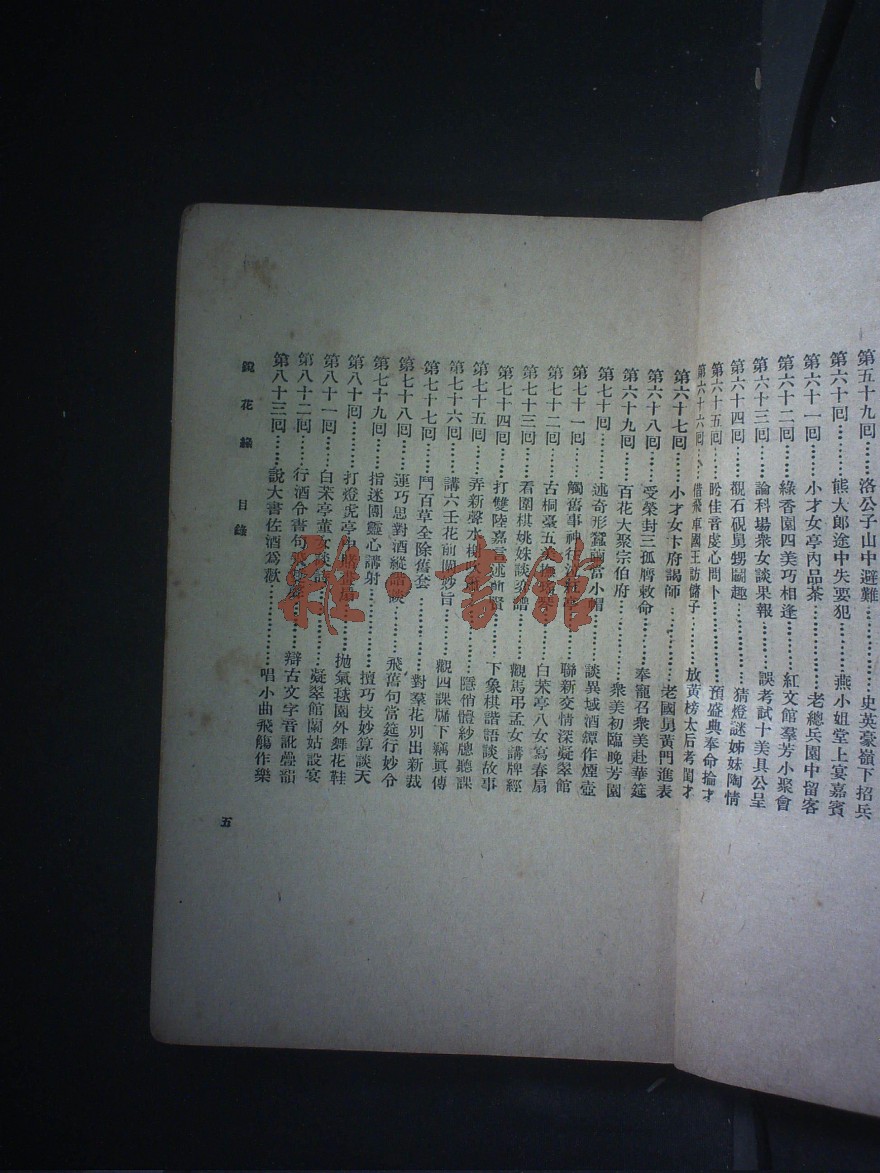 第五十九回……洛公子山中避難……史英豪嶺下招兵
第六十回……熊大郎途中失要犯……燕小姐堂上宴嘉賓
第六十一回……小才女亭內品茶……老總兵園中留客
第六十二回……綠香園四美巧相逢……紅文館羣芳小聚會
第六十三回……論科場衆女談果報……誤考試十美具公呈
第六十四回……覩石硯舅甥鬭趣……猜燈謎姊妹陶情
第六十五回……盻佳音虔心問卜……預盛典奉命掄才
第六十六回……借飛車國王訪儲子……放黃榜太后考閨才
第六十七回……小才女卞府謁師……老國舅黃門進表
第六十八回……受榮封三孤膺敕命……奉寵召衆美赴華筵
第六十九回……百花大聚宗伯府……衆美初臨晚芳園
第七十回……述奇形蠶繭當小帽……談異域酒罈作煙壺
第七十一回……觸舊事神往泣紅亭……聯新交情深凝翠館
第七十二回……古桐臺五美……白荣亭八女寫春扇
第七十三回……看圍棋姚姝談弈譜……觀馬弔孟女講牌經
第七十四回……打雙陸嘉言述前賢……下象棋諧語談故事
第七十五回……弄新聲水榭……隱俏體紗牕聽課
第七十六回……講六壬花前闡妙旨……觀四課牖下竊眞傳
第七十七回……鬥百草全除舊套……對羣花別出新裁
第七十八回……運巧思對酒縱諧談……飛舊句當筵行妙令
第七十九回……指迷團靈心講射……擅巧技妙算談天
第八十回……打燈虎亭中賭……拋氣毬園外舞花鞋
第八十一回……白荣亭董女談詩……凝翠館蘭姑設宴
第八十二回……行酒令書句飛雙聲……辯古文字音訛疊韻
第八十三回……說大書佐酒爲歡……唱小曲飛觴作樂
鏡花緣 目錄
五
雜·書館